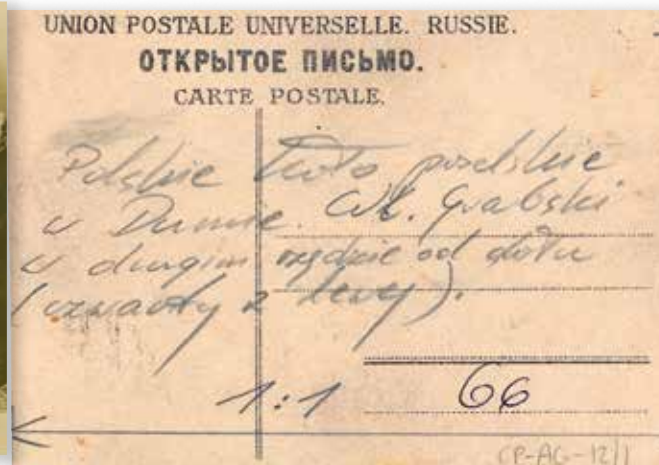 UNION POSTALE UNIVERSELLE. RUSSIE.
ОТКРЫТОЕ ПИСЬМО.
CARTE POSTALE.
Polskie Koło poselskie
w Dumie. Wł. Grabski
w drugim rzędzie od dołu
(czwarty z lewej).
1:1
66
CP-AG-12/1